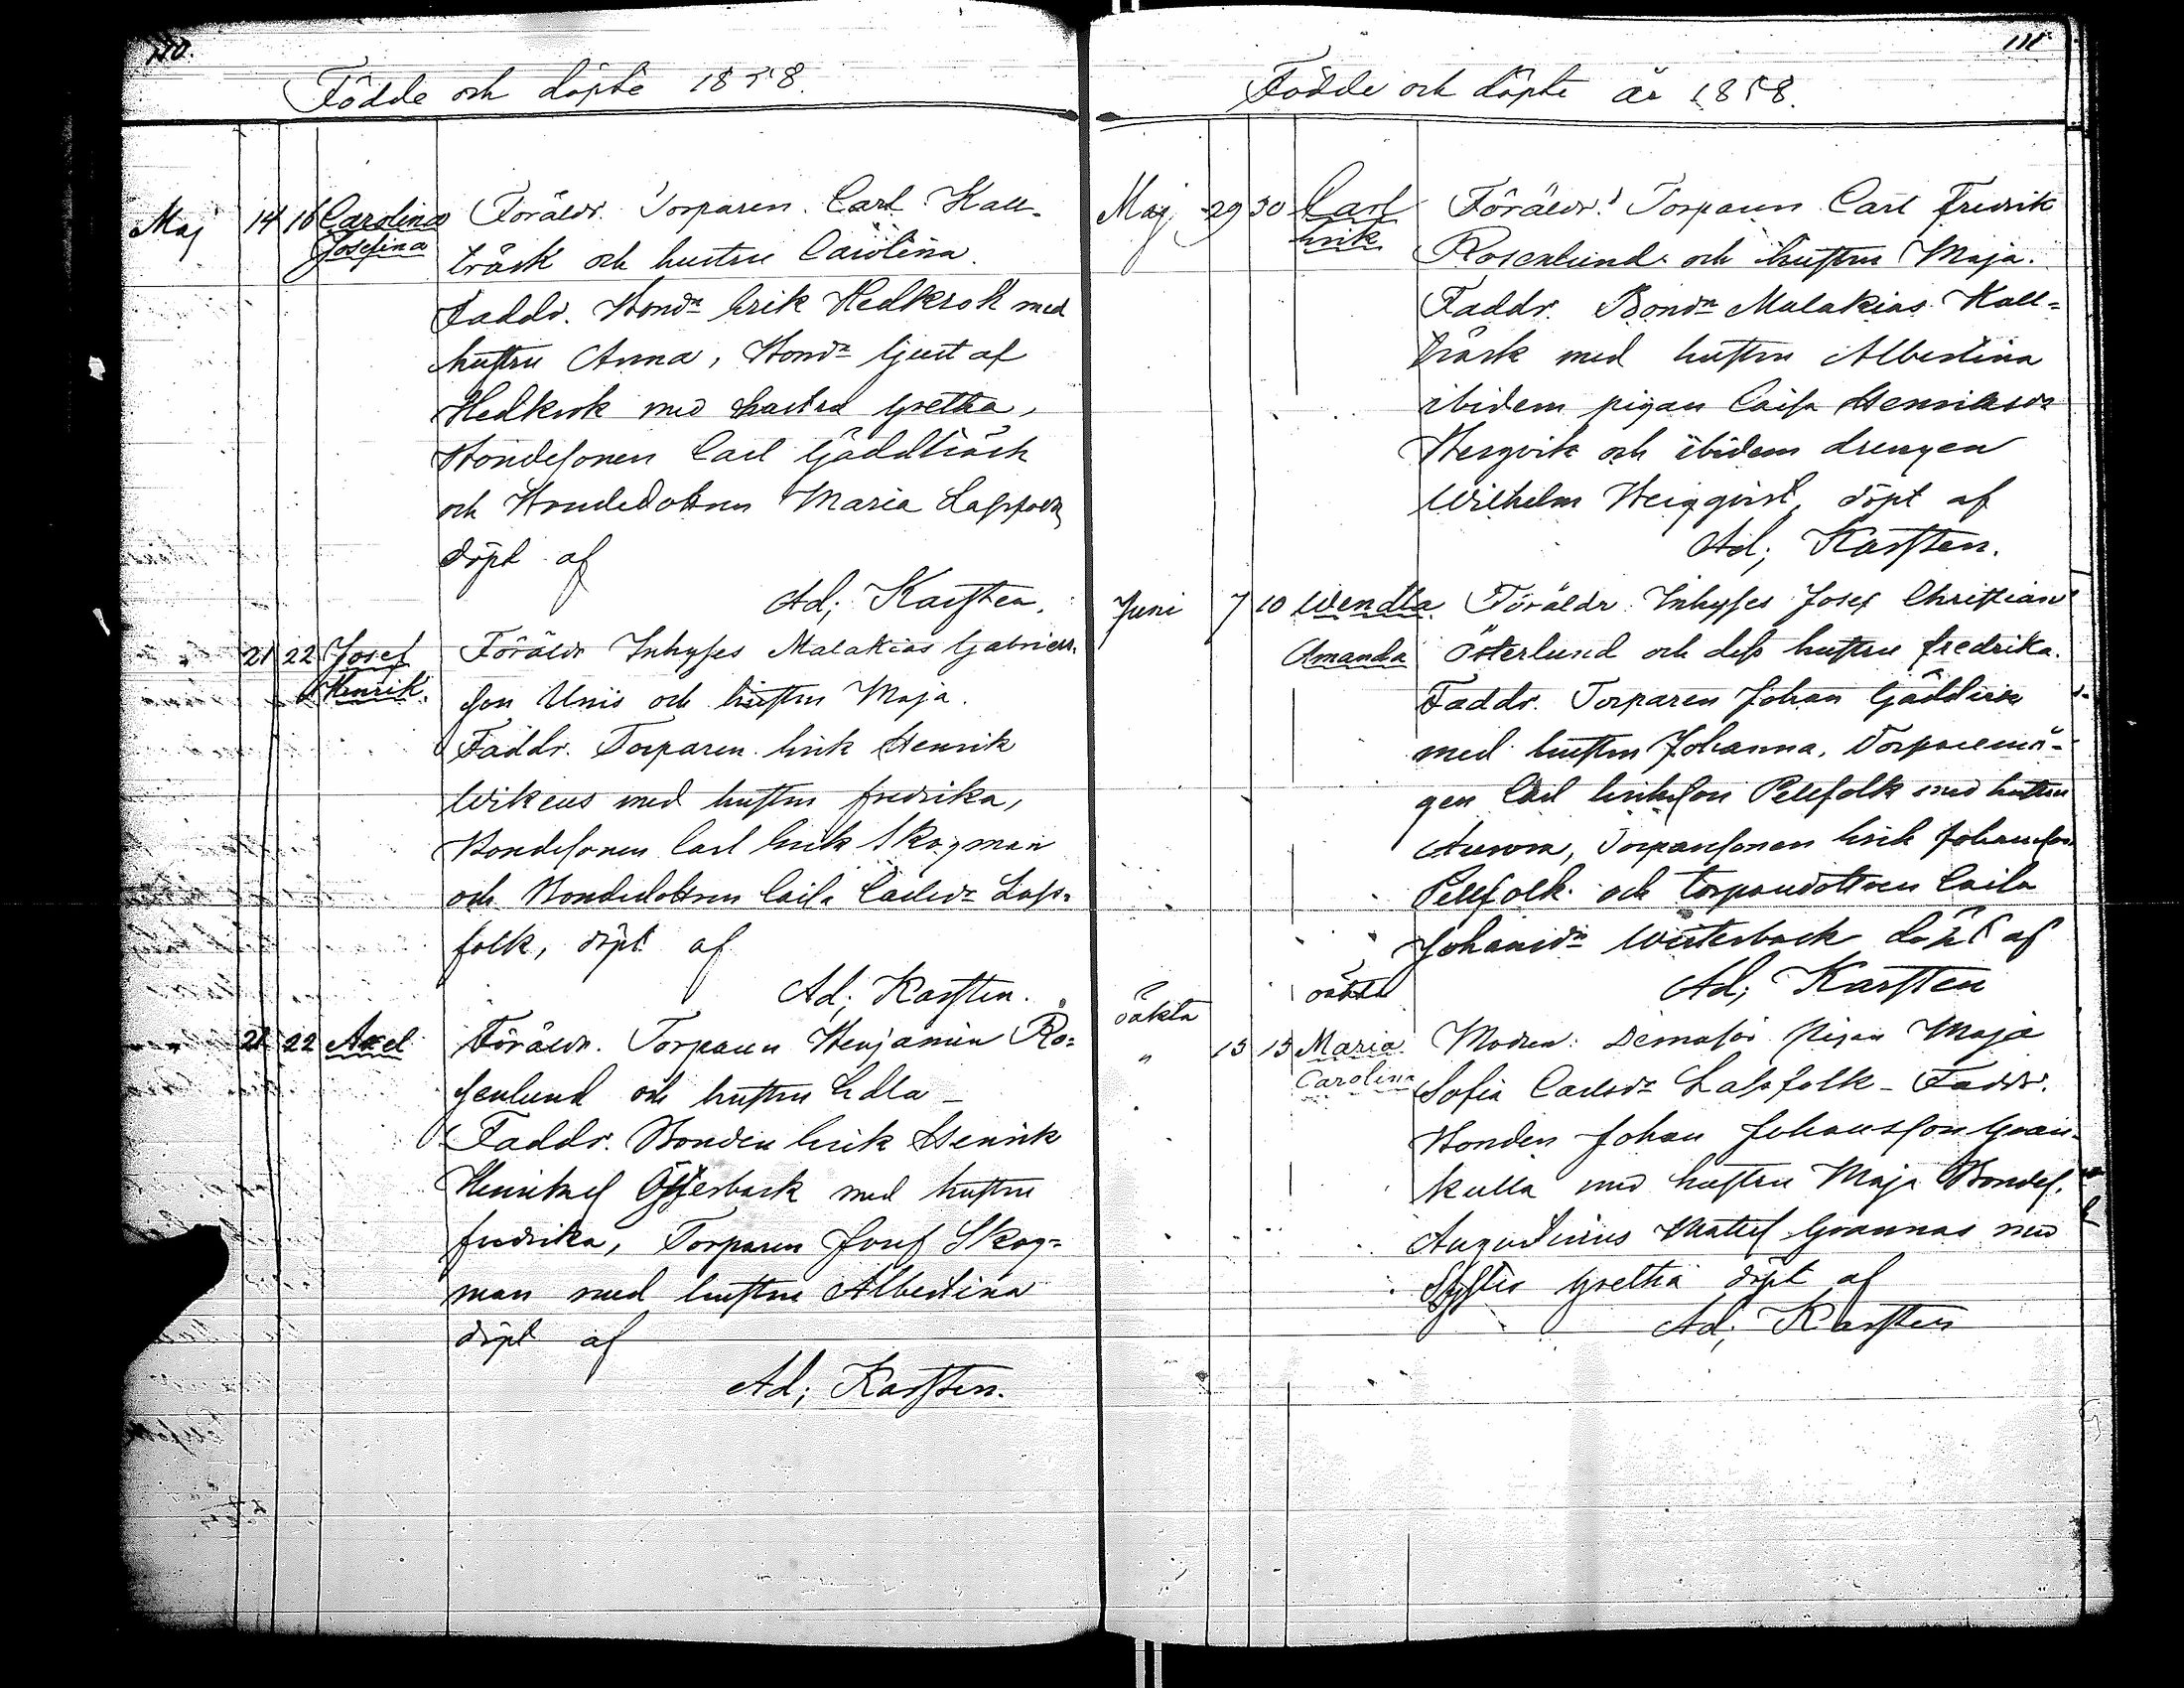 110.
Födde och döpte 1858.
Maj 14 16 Carolina Josefina
Föräldr. Torparen Carl Kall-
träsk och hustru Carolina.
Faddr. Bondn Erik Hedkrok med
hustru Anna, Bondn Gustaf
Hedkrok med hustru Gretha,
Bondesonen Carl Gäddträsk
och Bondedottren Maria
döpt af
Ad; Karsten.
21 22 Josef Henrik
Föräldr Inhyses Malakias Gabriels-
son Uniis och hustru Maja.
Faddr. Torparen Erik Henrik
Wikeus med hustru Fredrika,
Bondesonen Carl Erik Skogman
och Bondedottren Caisa Carlsdr Lass-
folk, döpt af
Ad; Karsten.
21 22 Axel
Föräldr. Torparen Benjamin Ro-
senlund och hustru Edla
Faddr. Bonden Erik Henrik
Henriks Österback med hustru
Fredrika, Torparen Josef Skog-
man med hustru Albertina
döpt af
Ad; Karsten.
111
Födde och döpte år 1858.
Maj 29 30 Carl Erik
Föräldr. Torparen Carl Fredrik
Rosenlund och hustru Maja.
Faddr. Bondn Malakias Kall-
träsk med hustru Albertina
ibidem pigan Caisa Henriksdr
Bergvik och ibidem drengen
Wilhelm Bergqvist, döpt af
Ad; Karsten.
Juni 7 10 Wendla Amanda
Föräldr. Inhyses Josef Christian
Österlund och dess hustru Fredrika.
Faddr. Torparen Johan
med hustru Johanna, Torparemå-
gen Carl Eriksson Pellfolk med hustru
Aurora, Torparesonen Erik Johansson
Pellfolk och torparedottren Caisa
Johansdr Westerback döpt af
Ad; Karsten
oäkta oäkta
" 13 13 Maria Carolina
Modren: pigan Maja
Sofia Carlsdr Lassfolk - Faddr.
Bonden Johan Johansson Gran-
kulla med hustru Maja Bondes.
Augustinus Mattss Grannas med
Syster Gretha döpt af
Ad; Karsten